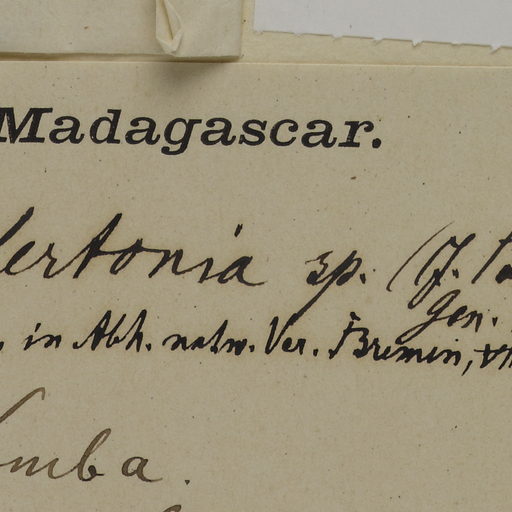 Madagascar.
lertonia sp. (f.
Gen.
in Abh. natw. Ver. Bremen,
omba.